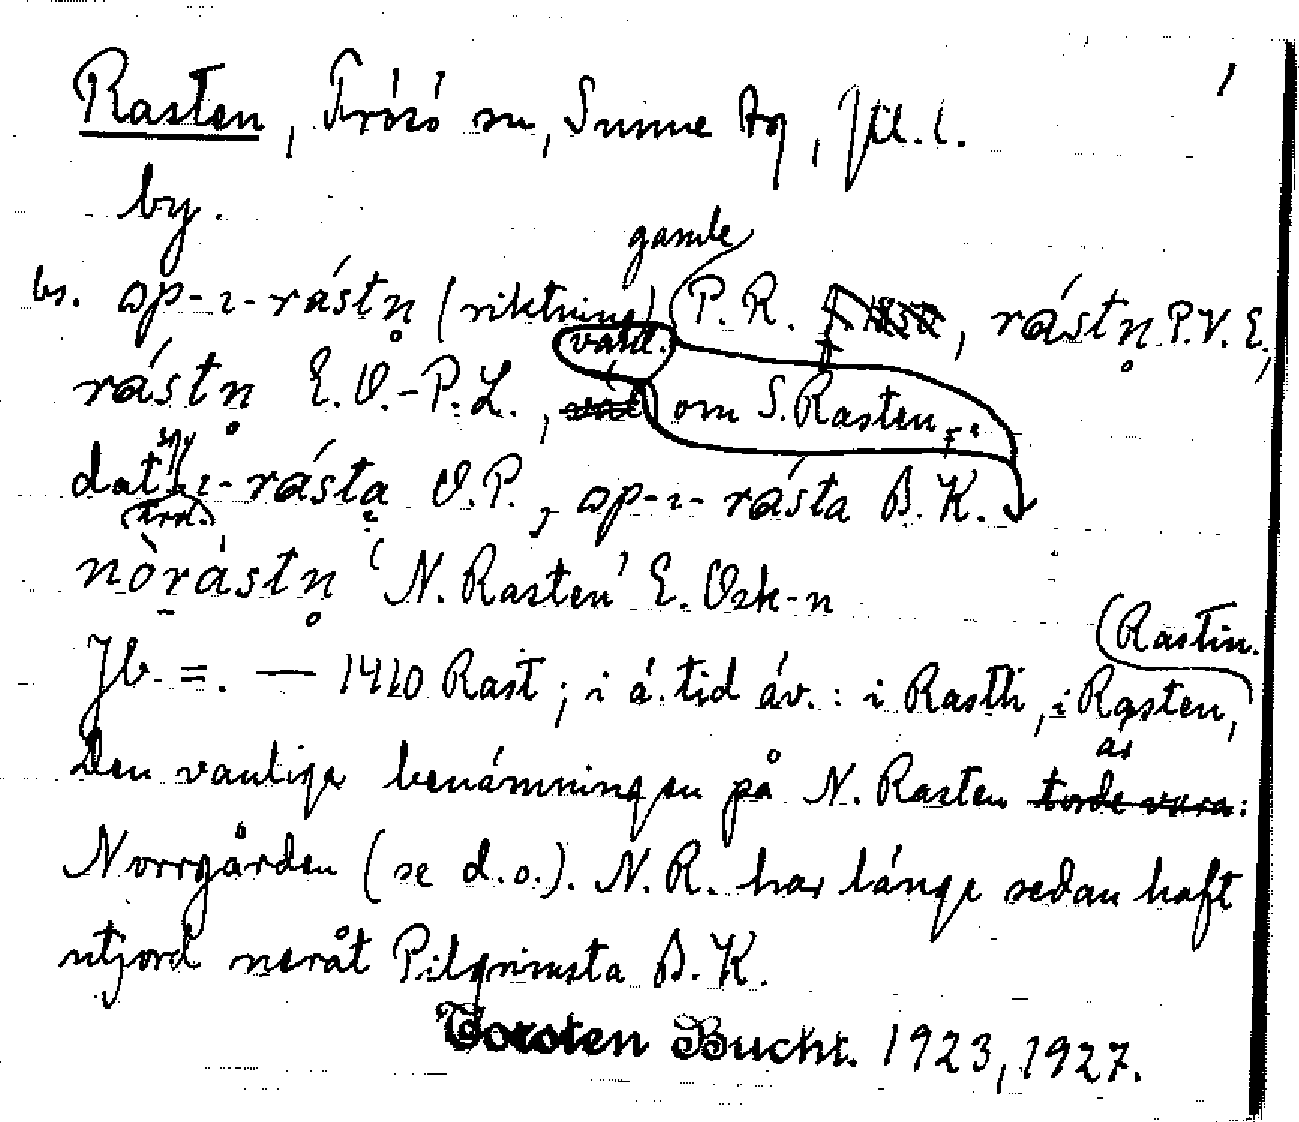 Rasten, Frösö sn, Sunne tg, Jtl. l.
by.
gamle
bs. op-ı-rástn̥ (riktning) P.R. , rástn̥ P.V.E,
vanl.
rástn̥ E.O.-P.L., om S. Rasten
dat. ı-rásta O.P., op-ı-rásta B.K.
nòrástn̥ 'N. Rasten' E. Osk-n
(Rastin.
Jb. =. — 1410 Rast; i ä. tid äv.: i Rasth, i Rasten,
är
Den vanliga benämningen på N. Rasten torde vara:
Norrgården (se d.o.). N.R. har länge sedan haft
utjord neråt Pilgrimsta B.K.
Torsten Bucht. 1923, 1927.